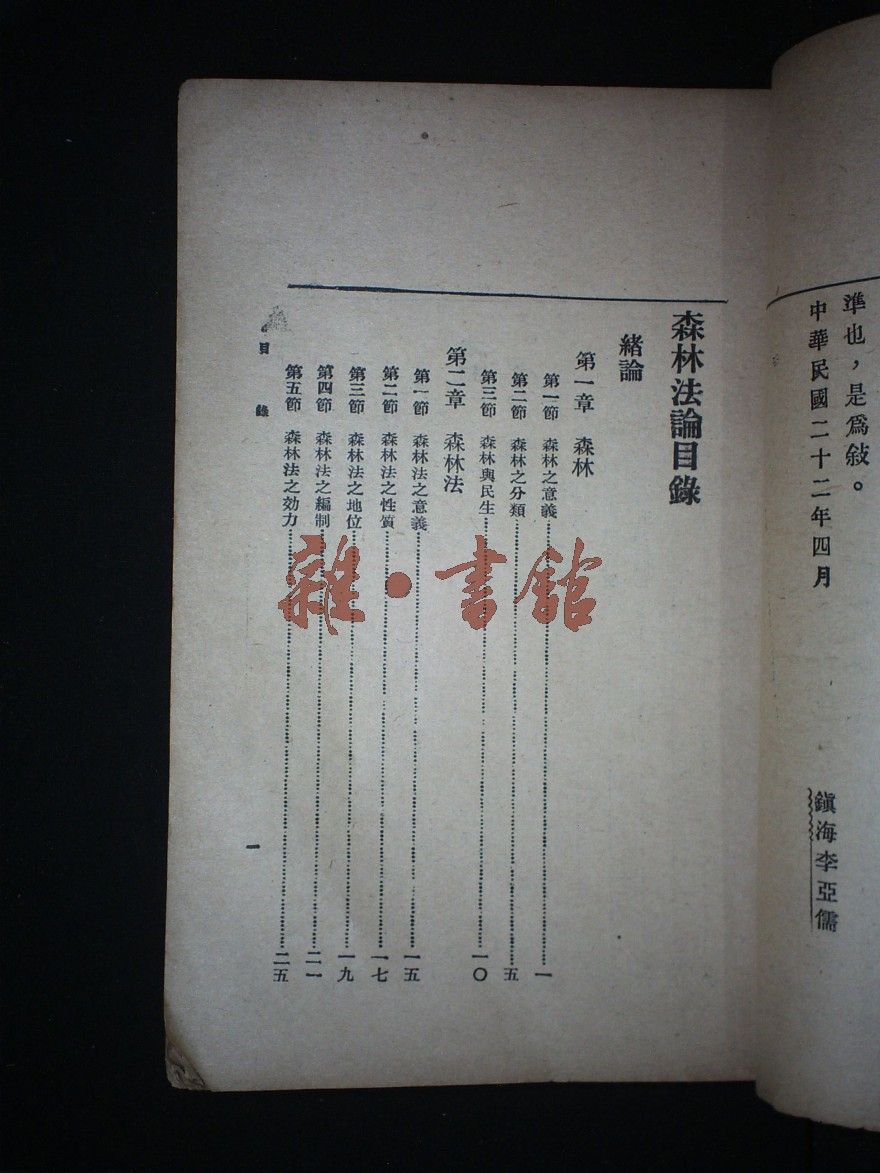 準也，是爲敍。
中華民國二十二年四月
鎭海李亞儒
森林法論目錄
緒論
第一章 森林
第一節 森林之意義……一
第二節 森林之分類……五
第三節 森林與民生……一〇
第二章 森林法
第一節 森林法之意義……一五
第二節 森林法之性質……一七
第三節 森林法之地位……一九
第四節 森林法之編制……二一
第五節 森林法之効力……二五
目錄
一
雜·書館